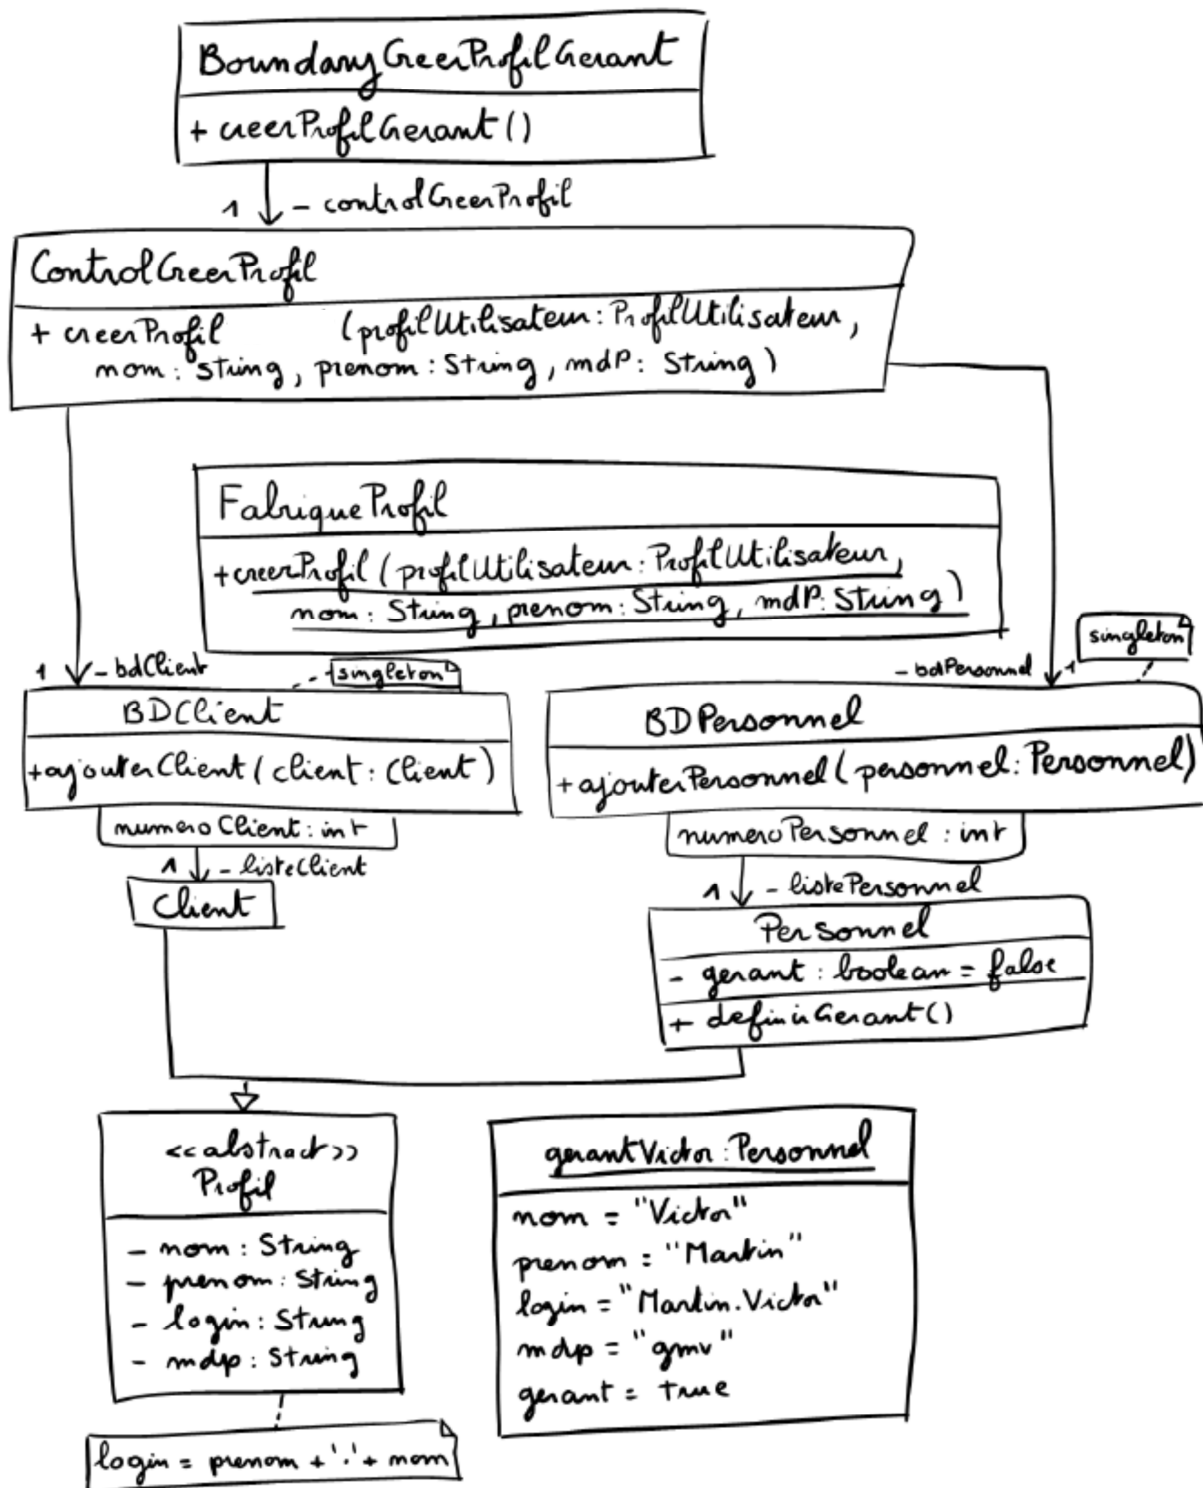 BoundaryCreerProfilGerant
+ creerProfilGerant()
1 - controlCreerProfil
ControlCreerProfil
+ creerProfil (profilUtilisateur: ProfilUtilisateur,
nom: String, prenom: String, mdP: String)
FabriqueProfil
+creerProfil(profilUtilisateur: ProfilUtilisateur,
nom: String, prenom: String, mdP: String)
1 - bdClient
singleton
- bdPersonnel 1
singleton
BDClient
+ajouterClient(client: Client)
numeroClient: int
1 - listeClient
Client
BDPersonnel
+ajouterPersonnel(personnel: Personnel)
numeroPersonnel: int
1 - listePersonnel
Personnel
- gerant: boolean = false
+ definirGerant()
<<abstract>>
Profil
- nom: String
- prenom: String
- login: String
- mdp: String
login = prenom +'.'+ nom
gerantVictor: Personnel
nom = "Victor"
prenom = "Martin"
login = "Martin.Victor"
mdp = "gmv"
gerant = true